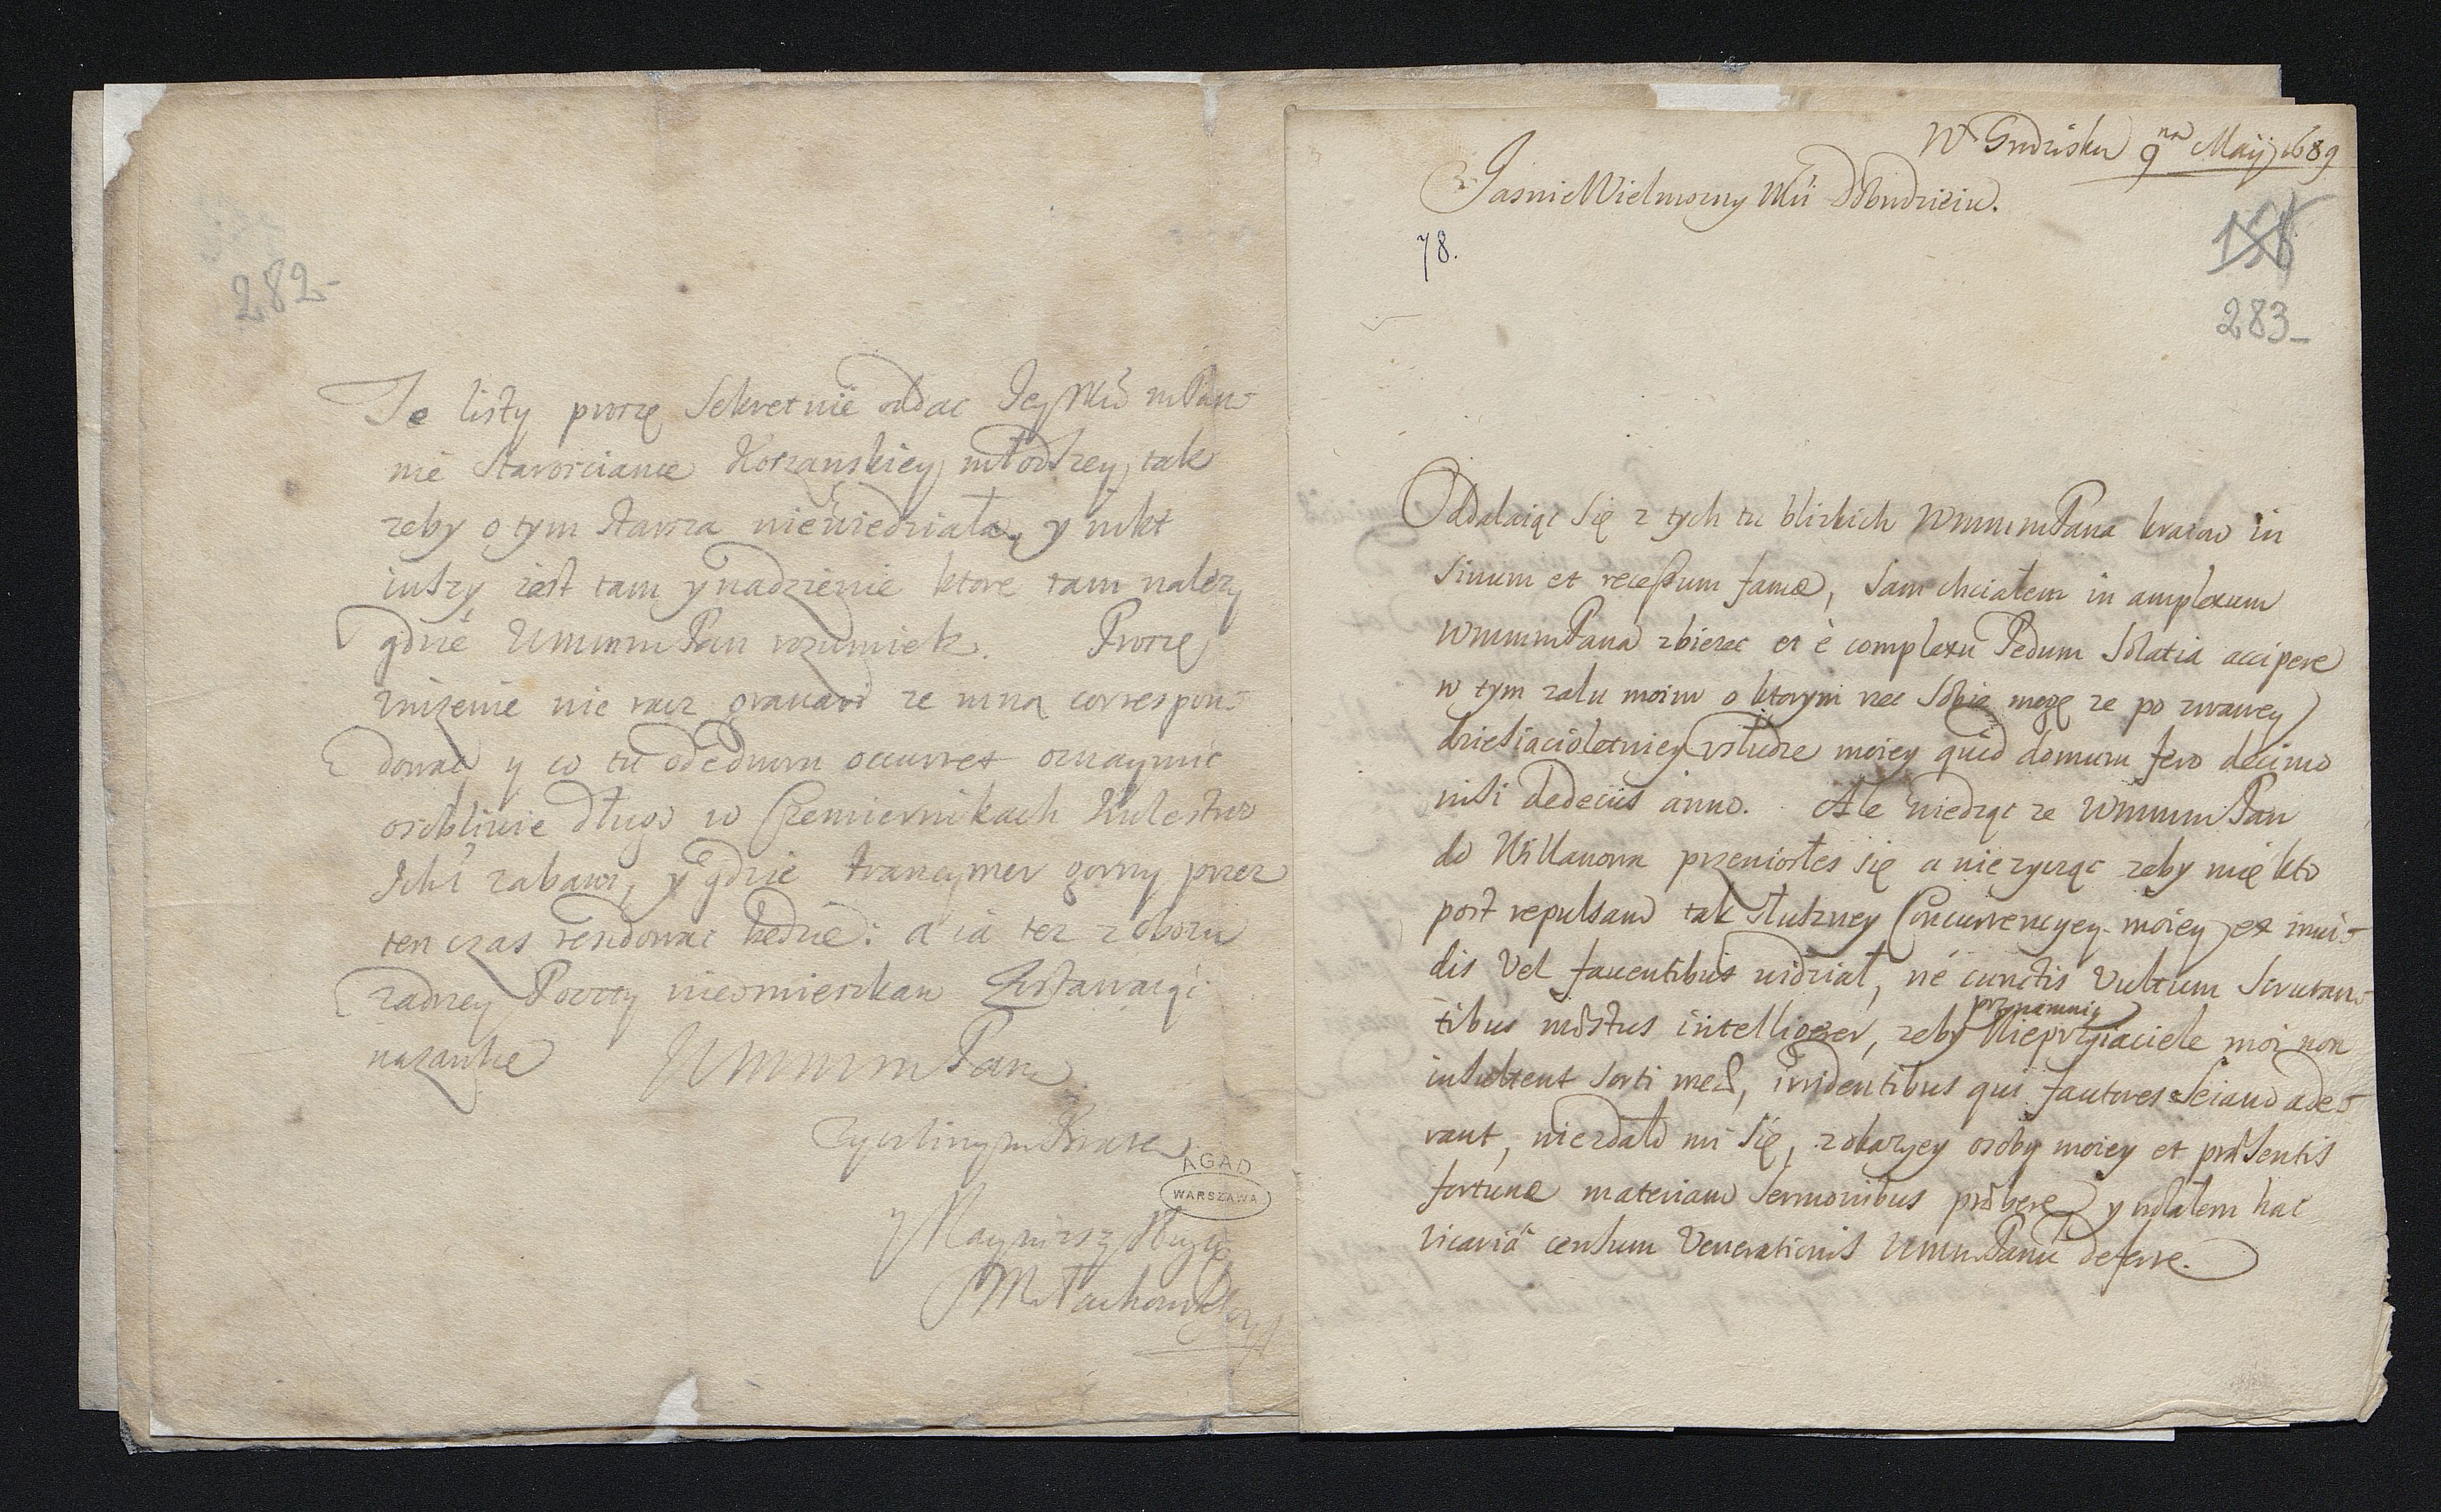 282-
Te listy proszę Sekretnie oddac Jey Mci mPan-
nie Starosciance Korzanskiey młodszey, tak
zeby o tym starsza niewiedziała, y nikt
inszy iest tam y nadzienie ktore tam należy
gdzie UmmmPan rozumiek. Proszę
uniżenie nie racz gravari ze mną correspon-
dowac y co tu odedworu occurret oznaymic
osobliwie długo w Czemiernikach Krolestwo
Ichm zabawi, y gdzie franczmer gorny przez
ten czas residowac będzie: a ia tez z obozu
zadney Poczty nieomieszkam Zostawaiąc
nazawsze UmmmmPan
Zyczliwym Bratem
y Nayniższ Sługą
M Tachowski
AGAD
WARSZAWA
W Grudzisku 9na Maÿ 1689
JasnieWielmozny Mci Dobrodzieiu.
78.
158
283-
Oddalaiąc się z tych tu blizkich WmmmmPana kraiow in
sinum et recessum famæ, sam chciałem in amplexum
WmmmmPana zbiezec et è complexu Pedum Solatia accipere
w tym zalu moim o ktorym rzec sobie mogę ze po zwawey
dziesiącioletniey usłudze moiey quid domum fero decimo
nisi dedecus anno. Ale wiedząc ze WmmmPan
do Willanowa przeniosłes się a nie zycząc zeby mię kto
post repulsam tak słuszney Concurrencyey moiey ex invi-
dis vel faventibus widział, ne cunctis Vultum Scrutan-
tibus mæstus intelligerer, zeby przynamniey Nieprzyiaciele moi non
insultent sorti meæ, irridentibus qui fautores Seiano ade-
rant, niezdało mi się, z okazyey osoby moiey et præsentis
fortunæ materiam sermonibus præbere y wolałem hac
vicariâ censum Venerationis UmmmPanu deferre.